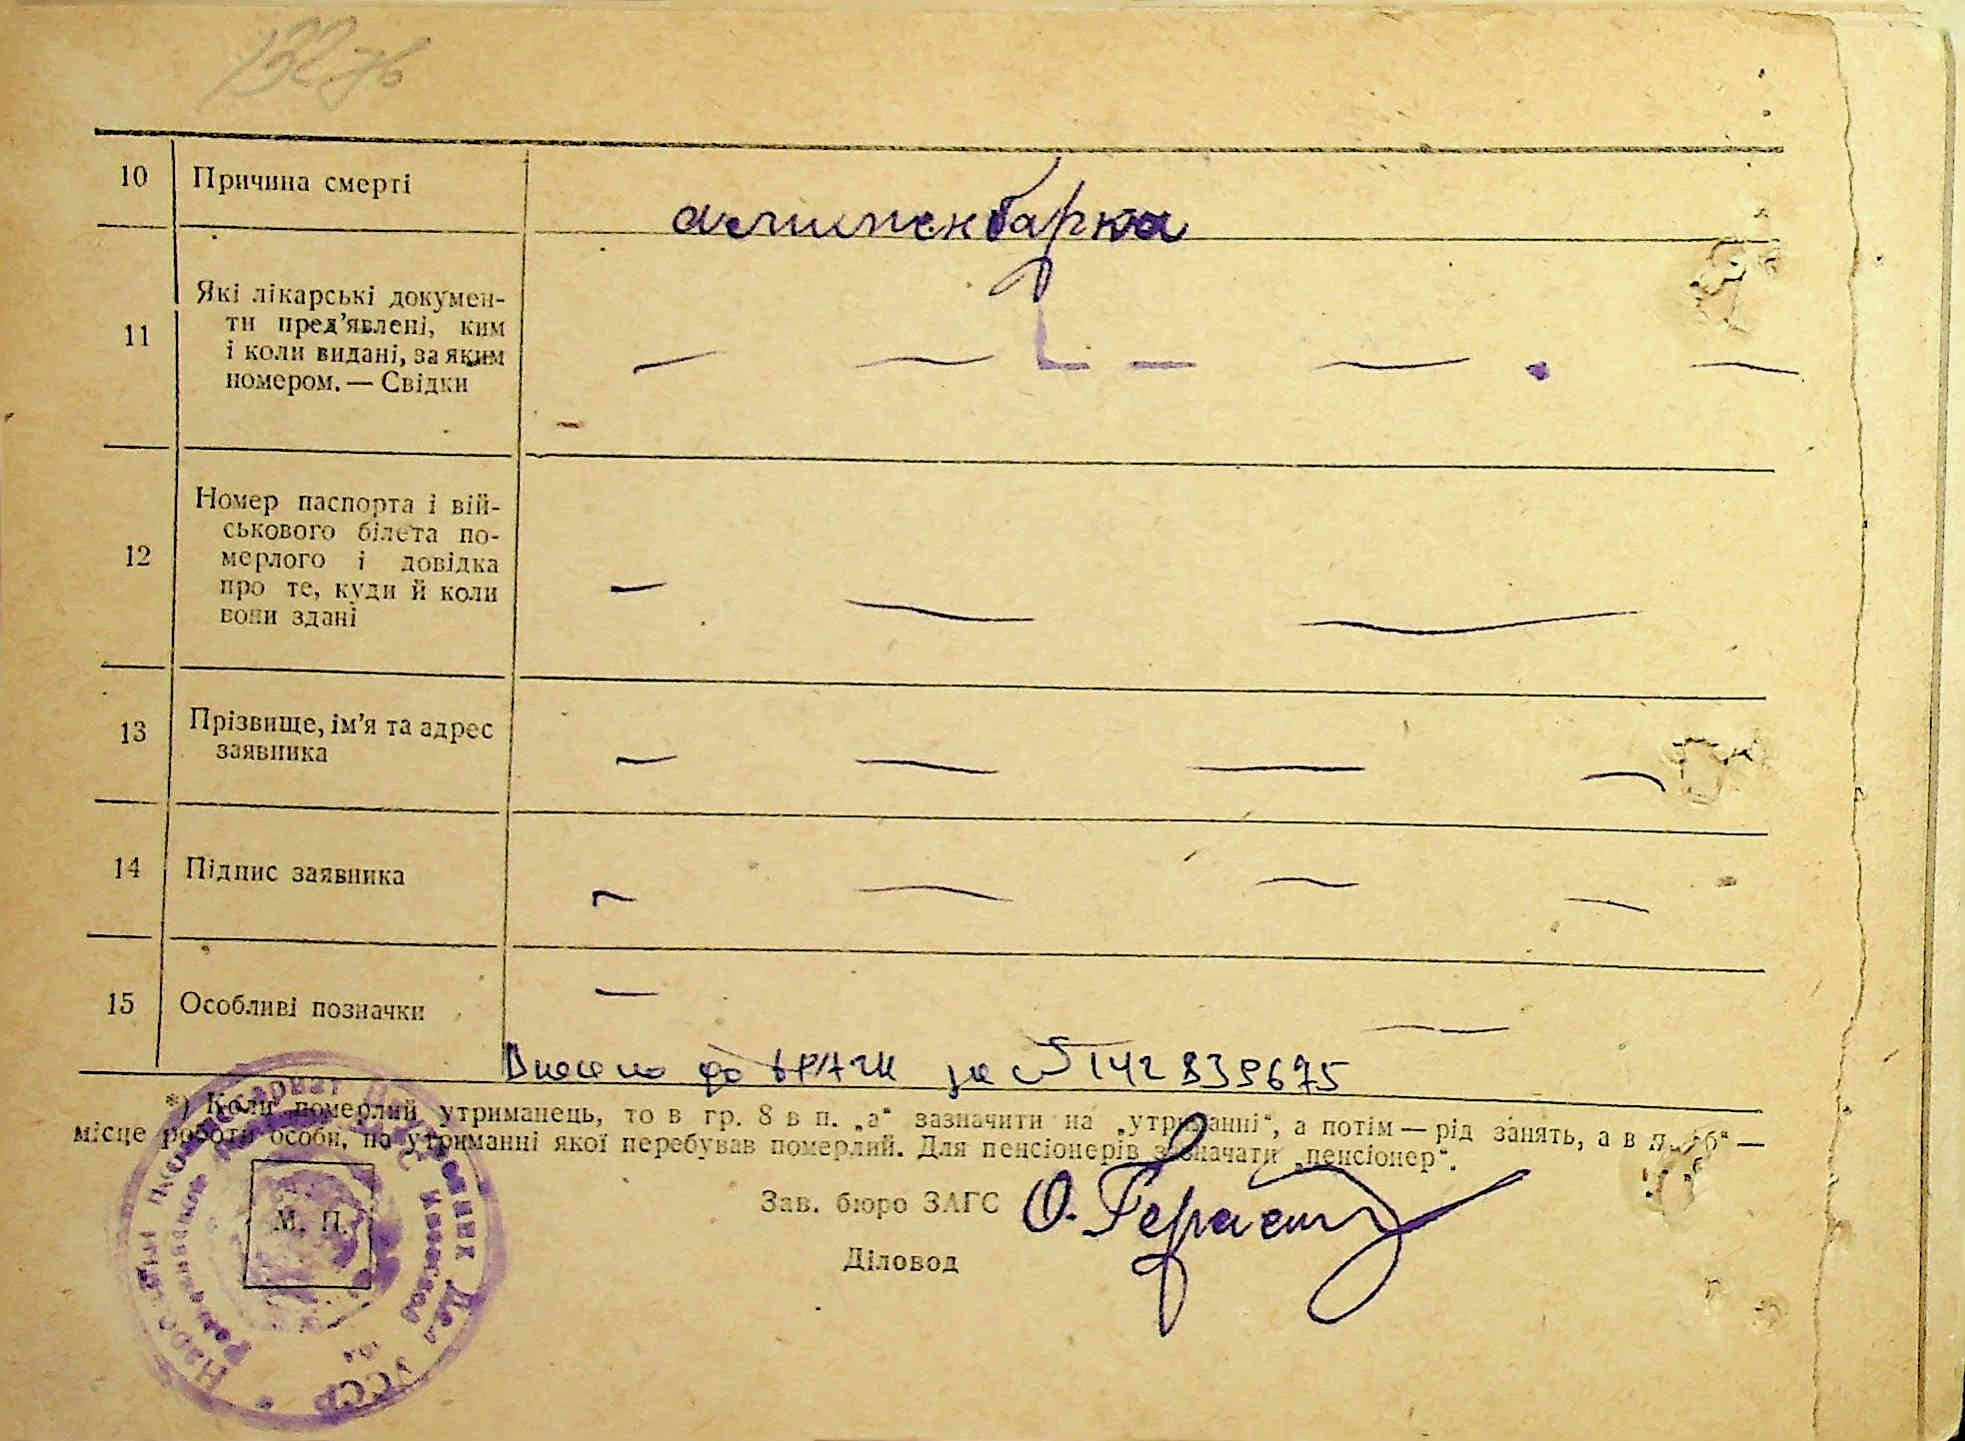 10 Причина смерті
11 Які лікарські докумен-
ти пред’явлені, ким
і коли видані, за яким
номером. — Свідки
12 Номер паспорта і вій-
ськового білета по-
мерлого і довідка
про те, куди й коли
вони здані
13 Прізвище, ім’я та адрес
заявника
14 Підпис заявника
15 Особливі позначки
Внесено до за № 142839675
*) Коли померлий утриманець, то в гр. 8 в п. „а“ зазначити на „утриманні“, а потім — рід занять, а в п. „б“ —
місце роботи особи, на утриманні якої перебував померлий. Для пенсіонерів зазначати „пенсіонер“.
Зав. бюро ЗАГС
Діловод
М. П.
УССР